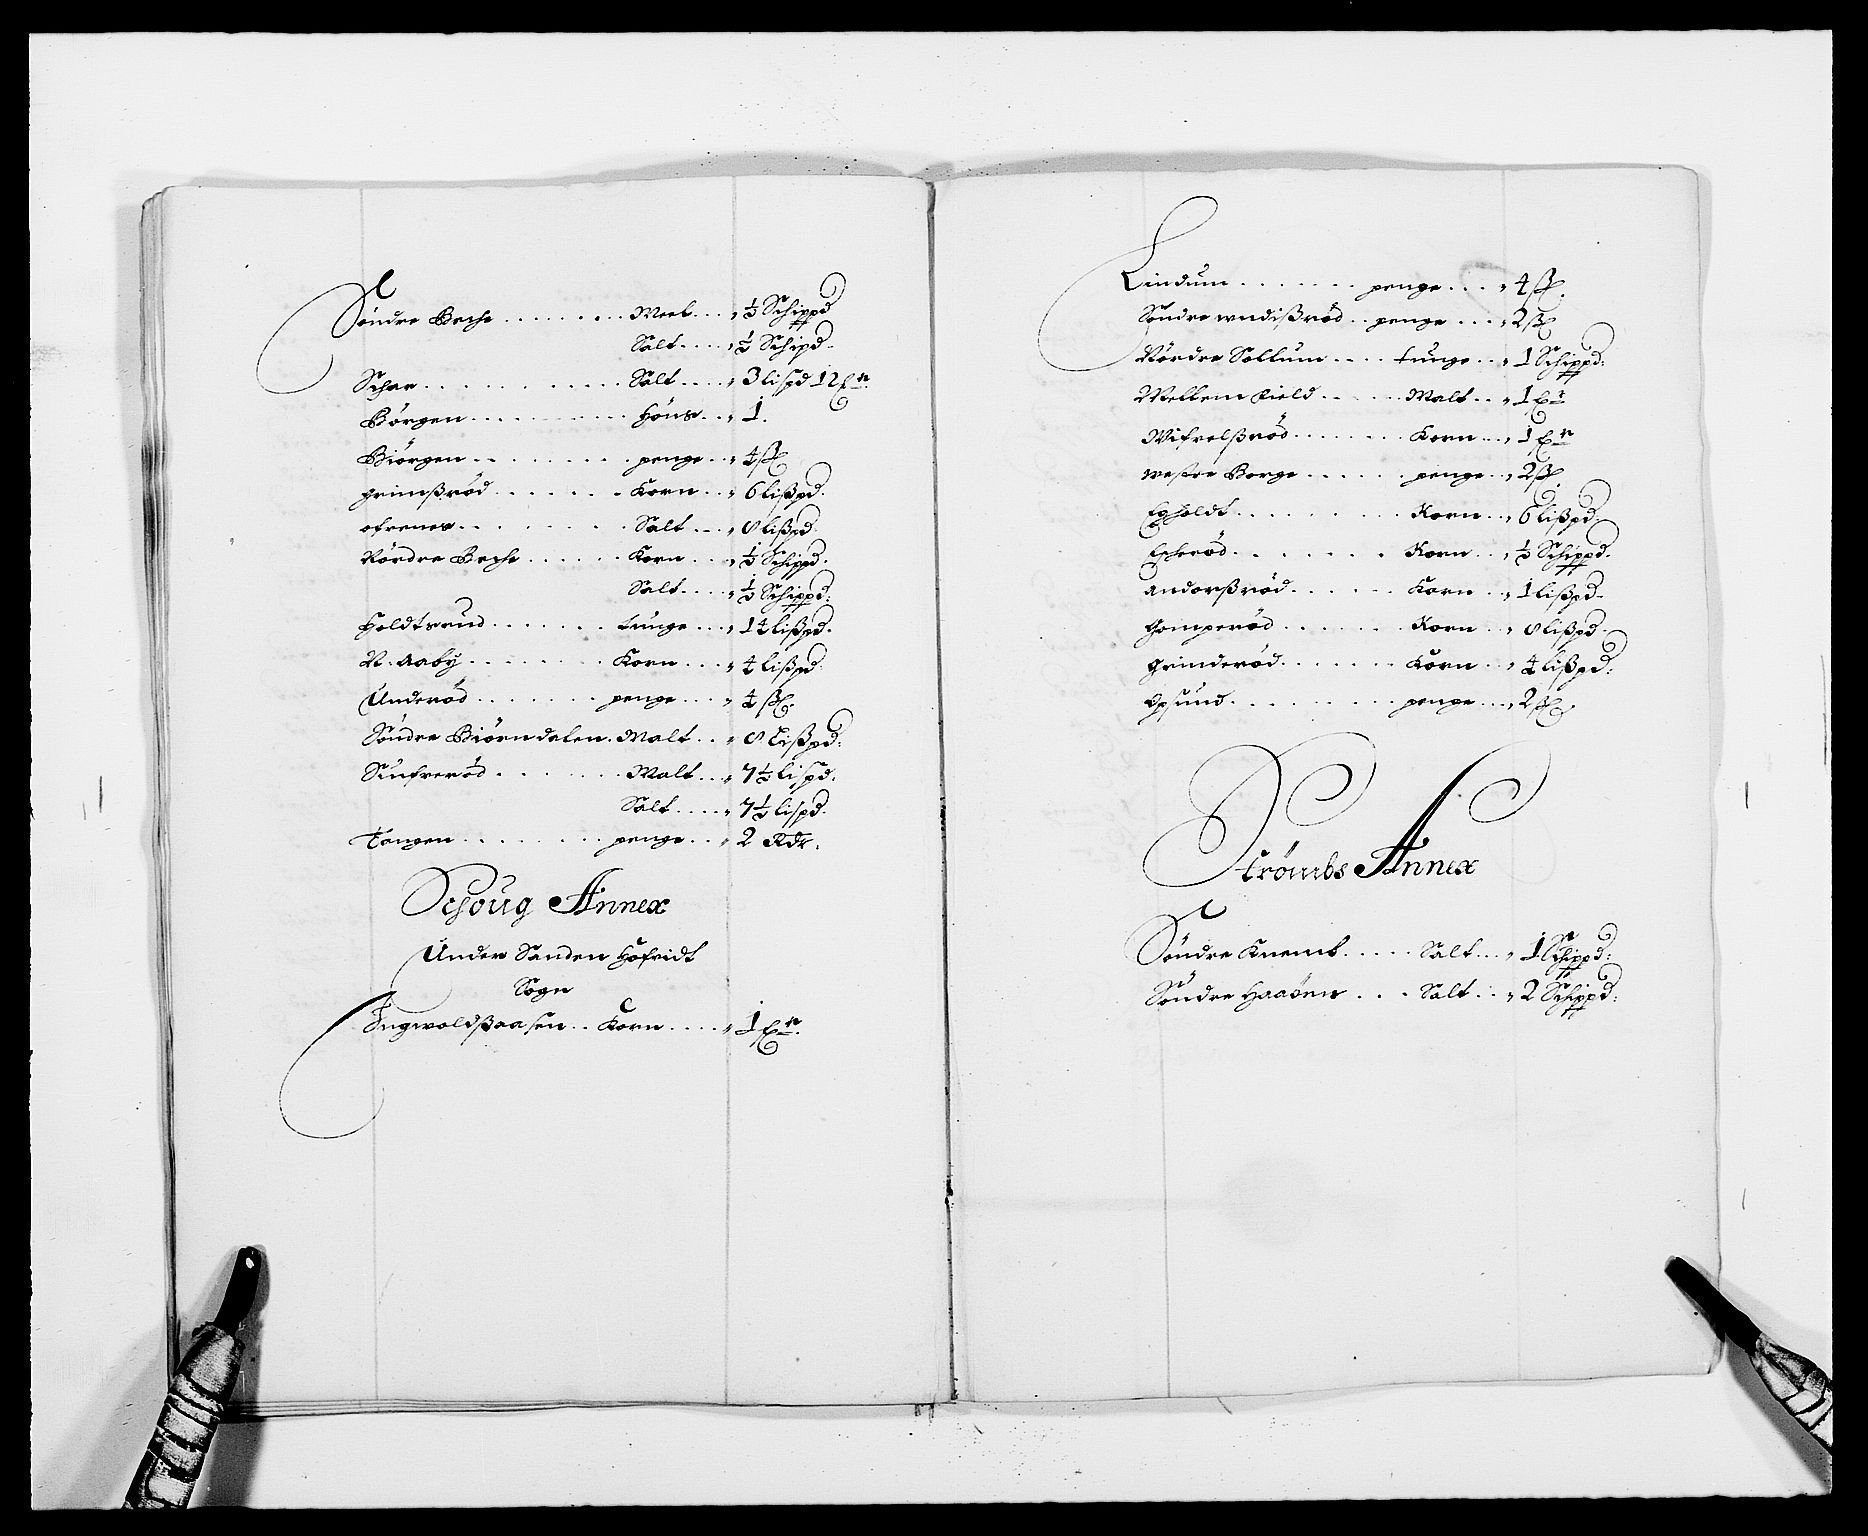 Søndre Beche ........ Meel ... ½ Schippd
Salt .... ½ Schipd.
Schae ............ Salt .... 3 lispd 12
Børgen .......... Høns .. 1.
Biørgen ......... penge .. 4 ß
Grimßrød ...... Korn .. 6 lißpd.
ofrenes ......... Salt ... 8 lißpd
Nørdre Beche ...... Korn ... ½ Schippd.
Salt .... ½ Schippd:
Holdtsrud ....... tunge ... 14 lißpd.
N. Aaby ........ Korn ... 4 lißpd
Underød ....... penge ... 4 ß
Søndre Biørndalen. Malt .. 8 Lißpd:
Sinfrerød ....... Malt ... 7½ lispd.
Salt .... 7½ lispd.
Tangen ........ penge .. 2 Rdr.
Schoug Annex
Under Sanden Høfvidt
Sogn
Ingwoldßaasen .. Korn .... 1
Lindum ....... penge .... 4 ß
Søndre wndißrød .. penge ... 2 ß
Nørdre Sollum .... tunge .. 1 Schippd:
Mellem Kield ..... Malt .. 1
Wifvelßrød ....... Korn ... 1
westre Borge ..... penge .. 2 ß
Egholdt ......... Korn .. 6 lißpd
Egherød ........ Korn ... ½ Schippd.
Andorßrød ...... Korn .. 1 lißpd.
Gamperød ....... Korn .. 8 lißpd.
Grinderød ....... Korn .. 4 lißpd:
Opsund ......... penge ... 2 ß
Strømbs Annex
Søndre Knemb ..... Salt ... 1 Schippd:
Søndre Haaøen ... Salt .. 2 Schippd: